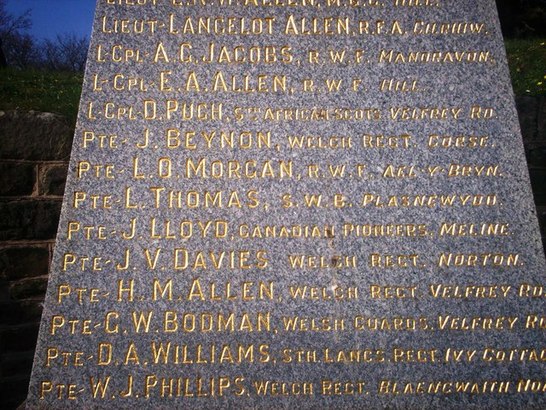 LIEUT- LANCELOT ALLEN, R.F.A. CILRHIW.
L-CPL A.G. JACOBS, R.W.F. MANORAVON.
L-CPL- E.A. ALLEN, R.W.F. HILL.
L-CPL D. PUGH, STH AFRICAN SCOTS. VELFREY RD.
PTE- J. BEYNON, WELCH REGT. CORSE.
PTE- L.O. MORGAN, R.W.F. AEL-Y-BRYN.
PTE- L. THOMAS, S.W.B. PLASNEWYDD.
PTE- J. LLOYD, CANADIAN PIONEERS, MELINE.
PTE- J.V. DAVIES WELCH REGT. NORTON.
PTE- H.M. ALLEN, WELCH REGT. VELFREY RD.
PTE- G.W. BODMAN, WELSH GUARDS, VELFREY RD
PTE- D.A. WILLIAMS, STH. LANCS. REGT. IVY COTTAG
PTE- W.J. PHILLIPS, WELCH REGT. BLAENGWAITH NO